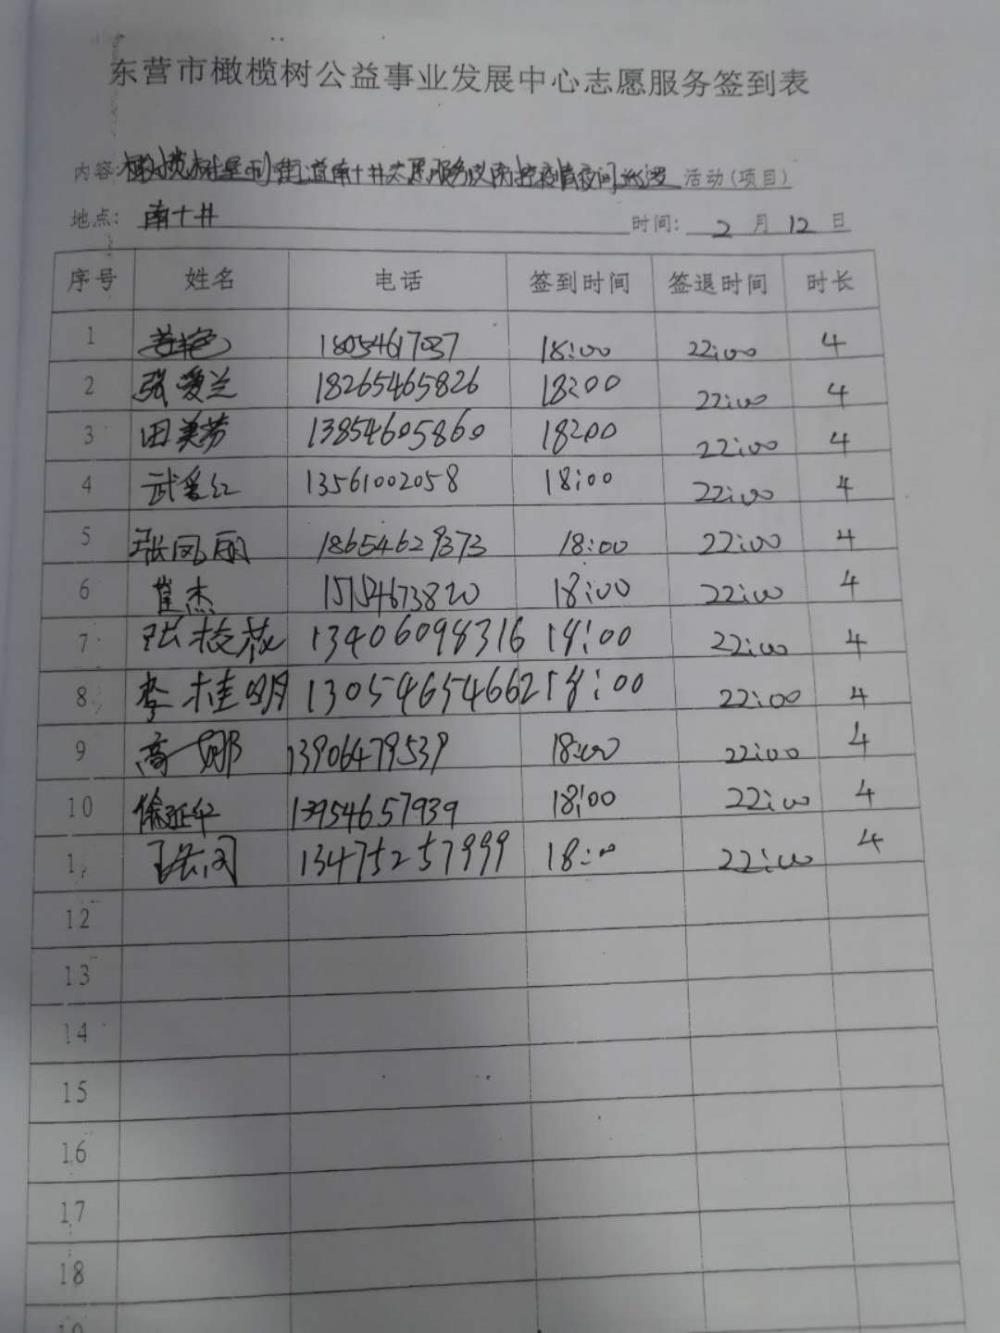 东营市橄榄树公益事业发展中心志愿服务签到表
内容: 橄榄树垦利街道南十井志愿服务队防控疫情夜间巡逻 活动(项目)
地点: 南十井 时间: 2 月 12 日
序号 姓名 电话 签到时间 签退时间 时长
1 18:00 22:00 4
2 张爱兰 18265465826 18:00 22:00 4
3 田美芳 13854605860 18:00 22:00 4
4 武爱红 13561002058 18:00 22:00 4
5 张凤丽 18654629373 18:00 22:00 4
6 崔杰 15154673820 18:00 22:00 4
7 张 13406098316 18:00 22:00 4
8 李桂明 13054654662 18:00 22:00 4
9 高娜 13906479539 18:00 22:00 4
10 徐延华 13954657939 18:00 22:00 4
1 13475257999 18:00 22:00 4
12
13
14
15
16
17
18
19